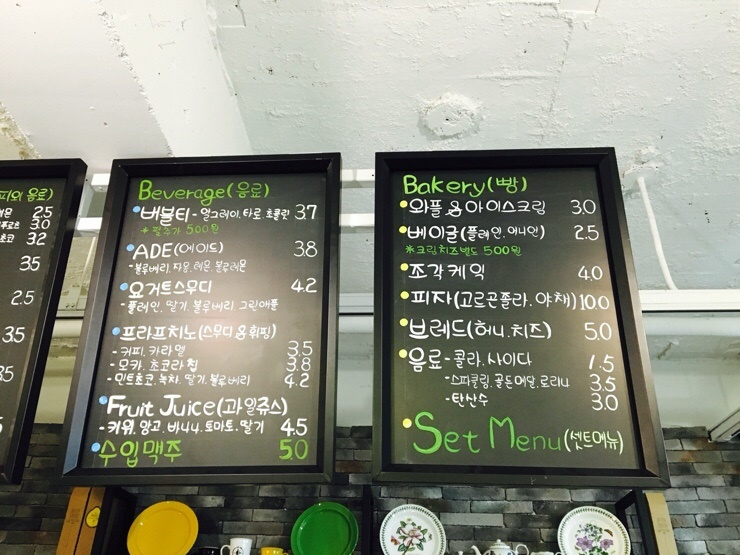 음료)
2.5
3.0
초코 3.2
3.5
2.5
3.5
3.5
Beverage(음료)
버블티 - 얼그레이.타로.초콜릿 3.7
*펄추가 500원
ADE(에이드) 3.8
-블루베리.자몽.레몬.블루레몬
요거트스무디 4.2
-플레인.딸기.블루베리.그린애플
프라프치노(스무디&휘핑)
-커피.카라멜 3.5
-모카.초코라칩 3.8
-민트초코.녹차.딸기.블루베리 4.2
Fruit Juice(과일쥬스)
-키위.망고.바나나.토마토.딸기 4.5
수입맥주 5.0
Bakery(빵)
와플&아이스크림 3.0
베이글(플레인.어니언) 2.5
*크림치즈별도 500원
조각케익 4.0
피자(고르곤졸라.야채) 10.0
브레드(허니.치즈) 5.0
음료-콜라.사이다 1.5
-스파클링.골든메달.로리나 3.5
-탄산수 3.0
Set Menu(셋트메뉴)